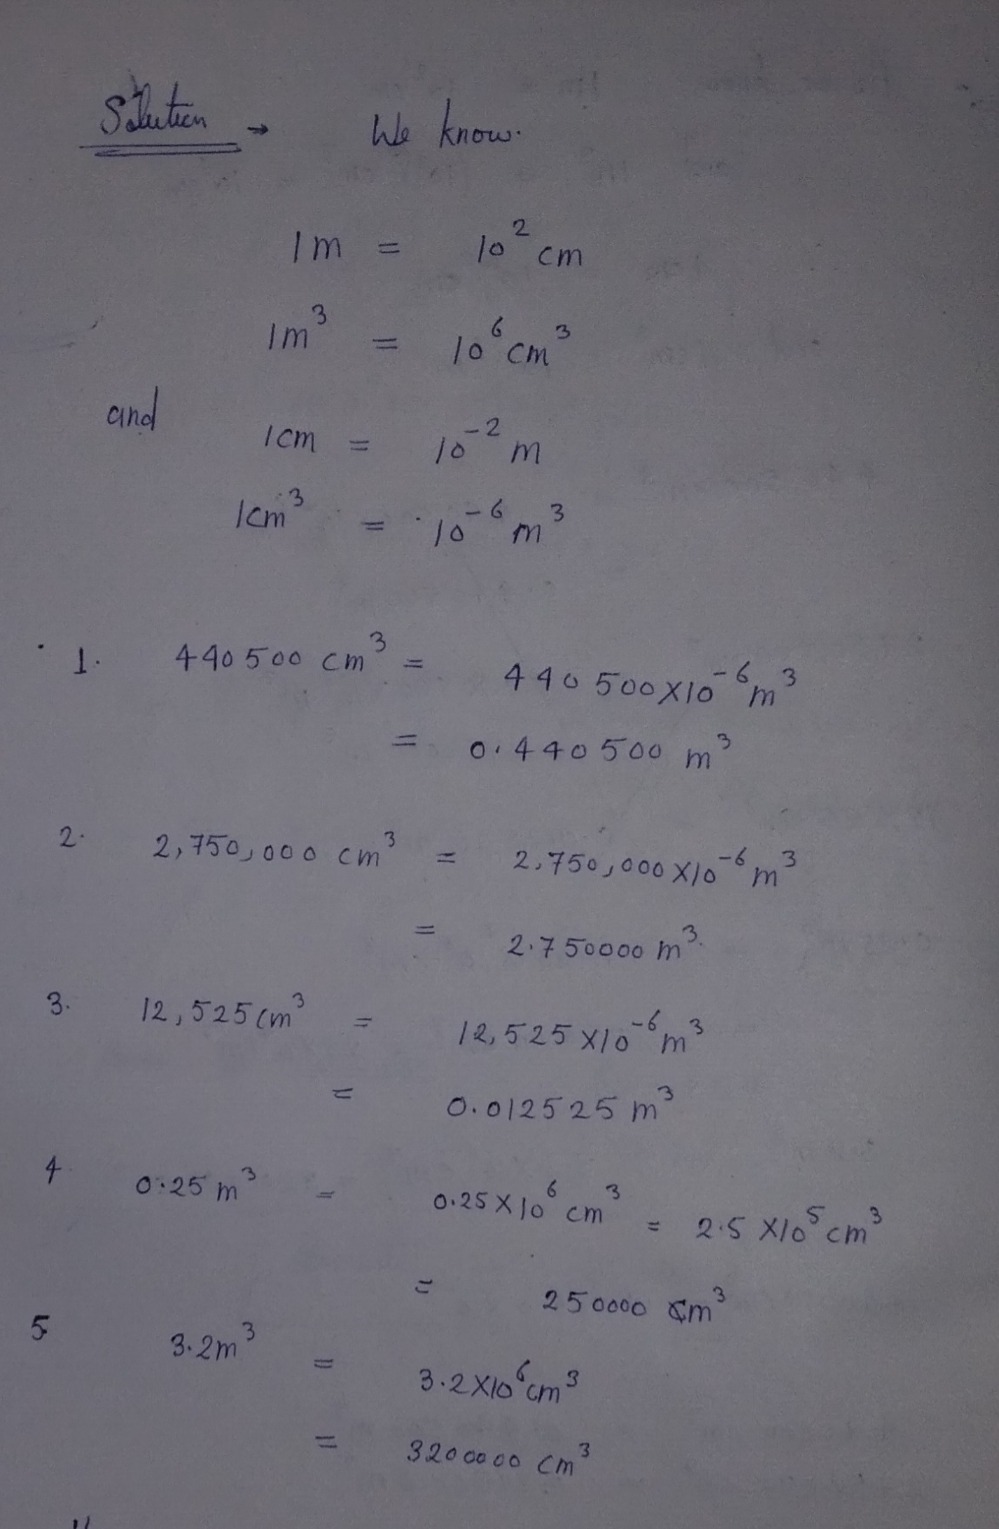 Solution → We know.
1m = 10² cm
1m³ = 10⁶ cm³
and 1cm = 10⁻² m
1cm³ = 10⁻⁶ m³
1. 440500 cm³ = 440500×10⁻⁶ m³
= 0.440500 m³
2. 2,750,000 cm³ = 2,750,000×10⁻⁶ m³
= 2.750000 m³.
3. 12,525 cm³ = 12,525×10⁻⁶ m³
= 0.012525 m³
4 0.25 m³ = 0.25×10⁶ cm³ = 2.5×10⁵ cm³
= 250000 cm³
5 3.2m³ = 3.2×10⁶ cm³
= 3200000 cm³